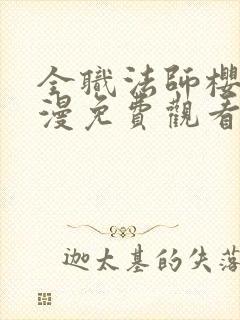 全職法師櫻
漫免費觀看
迦太基的失落